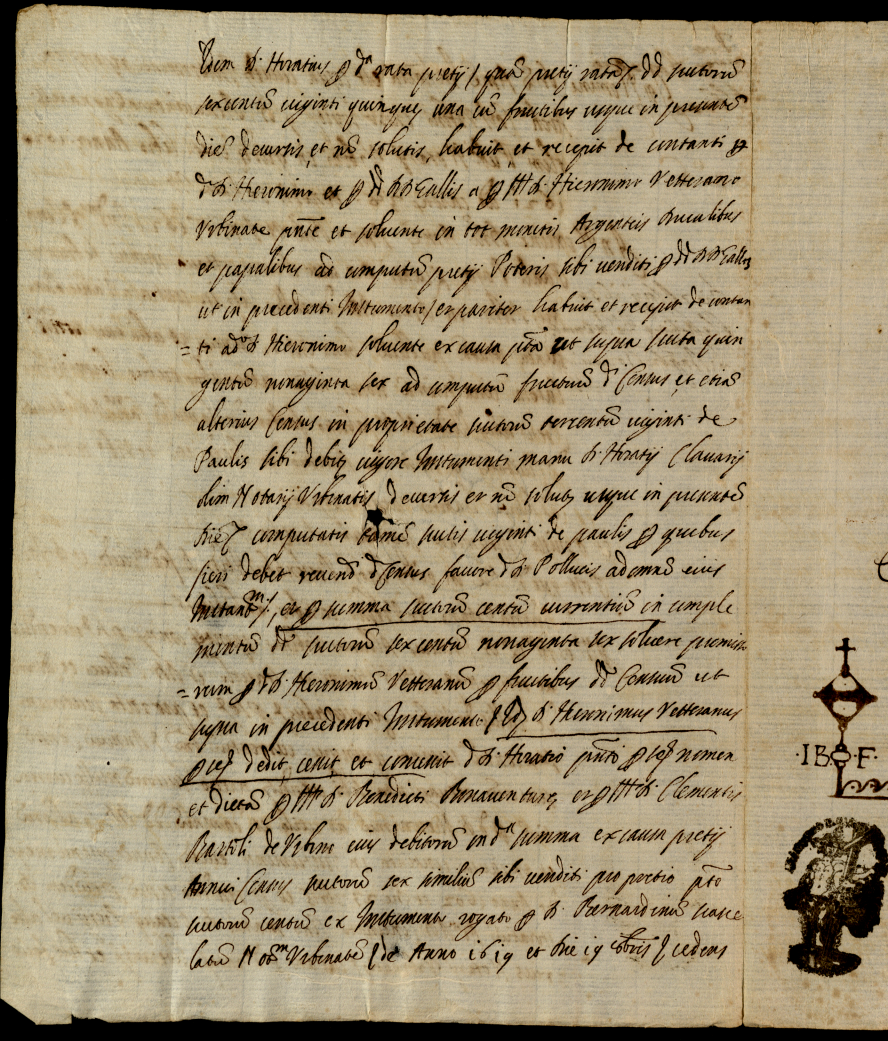 Idem D. Horatius ꝑ dᵃ rata pretij / quā pretij ratā ſ. dd scutorū
sexcentū viginti quinque, una cū fructibus usque in presentē
diē decursis, et nō solutis, habuit et recepit de contanti ꝑ
d. D. Hieronimo et ꝑ dd DD Gallis a ꝑ Ill. D. Hieronimo Vetterano
Vrbinate pn̄te et solvente in tot monetis Argenteis Ducalibus
et papalibus ad computū pretij Poderis sibi venditi ꝑ dd DD Gallos
ut in precedenti Instrumento / et pariter habuit et recepit de contan
= ti a dᵒ D. Hieronimo solvente ex causa pt̄a ut supra scuta quin
gentū nonaginta sex ad computū fructuū dⁱ Census et etiā
alterius Census in proprietate scutorū tercentū viginti de
Paulis sibi debitę vigore Instrumenti manu D. Horatij Clavarij
olim Notarij Vrbinatis decursis et nō solutę usque in presentē
diē computatis tamē scutis viginti de paulis ꝑ quibus
fieri debet d Census favore d. D. Pollucis ad omnē eius
Instantᵐ /, et ꝑ summa scutorū centū currentiū in comple
mentū dd scutorū sexcentū nonaginta sex solvere promisso
= rum ꝑ d. D. Hieronimū Vetteranū ꝑ fructibus dd Censuū ut
supra in precedenti Instrumento / Idē D. Hieronimus Vetteranus
ꝑ se dedit, cessit et convenit d. D. Horatio pn̄ti ꝑ se nomen
et dictā ꝑ Ill. D. Benedicti Bonaventurę, et ꝑ Ill. D. Clementis
Bartoli de Vrbino eius debitorū in dᵃ summa ex causa pretij
Annui Census scutorū sex similiū sibi venditi pro pretio pt̄o
scutorū centū ex Instrumento rogato ꝑ D. Bernardinū
latū Notᵐ Vrbinatē / de Anno 1619 et die 19 8bris / cedens
·IB F·